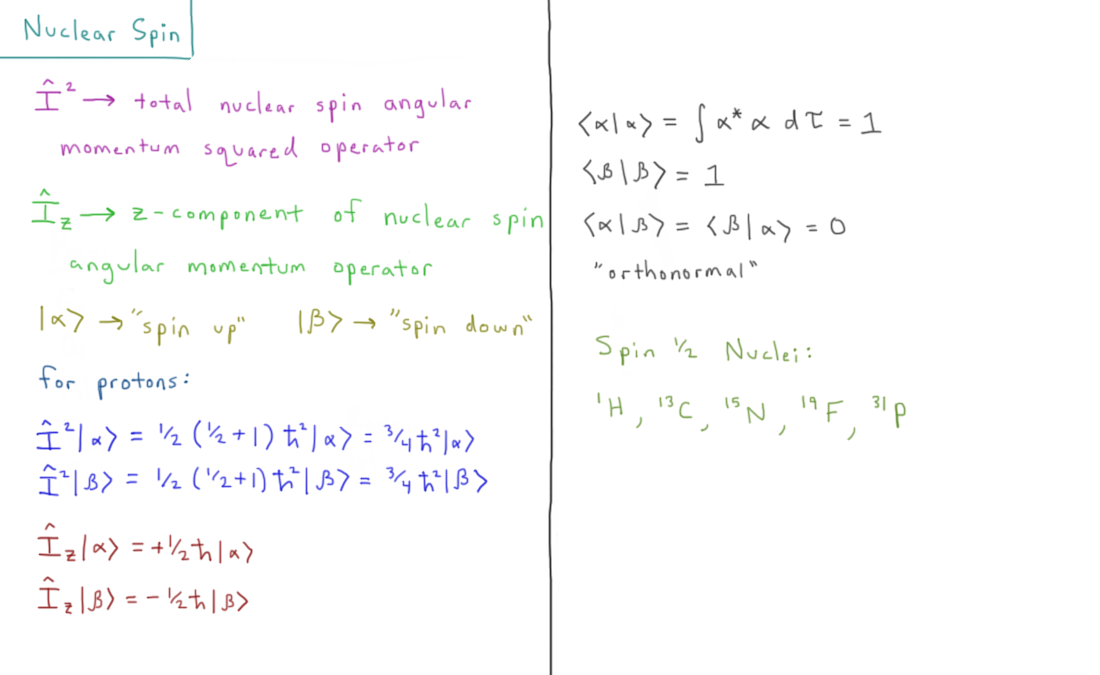 Nuclear Spin
Î² → total nuclear spin angular
momentum squared operator
Î_z → z-component of nuclear spin
angular momentum operator
|α⟩ → "spin up"   |β⟩ → "spin down"
for protons:
Î²|α⟩ = ½ (½+1) ħ²|α⟩ = ¾ ħ²|α⟩
Î²|β⟩ = ½ (½+1) ħ²|β⟩ = ¾ ħ²|β⟩
Î_z|α⟩ = +½ħ|α⟩
Î_z|β⟩ = -½ħ|β⟩
⟨α|α⟩ = ∫ α* α dτ = 1
⟨β|β⟩ = 1
⟨α|β⟩ = ⟨β|α⟩ = 0
"orthonormal"
Spin ½ Nuclei:
¹H, ¹³C, ¹⁵N, ¹⁹F, ³¹P